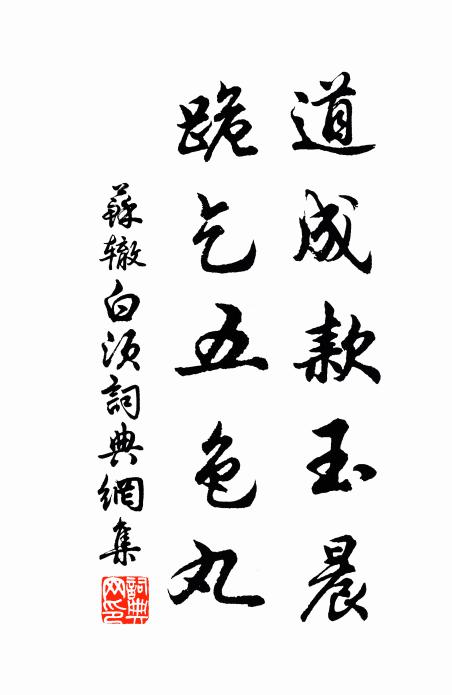 道成款玉晨
跪乞五色丸
蘇辙白须詞典網集
詞典网印